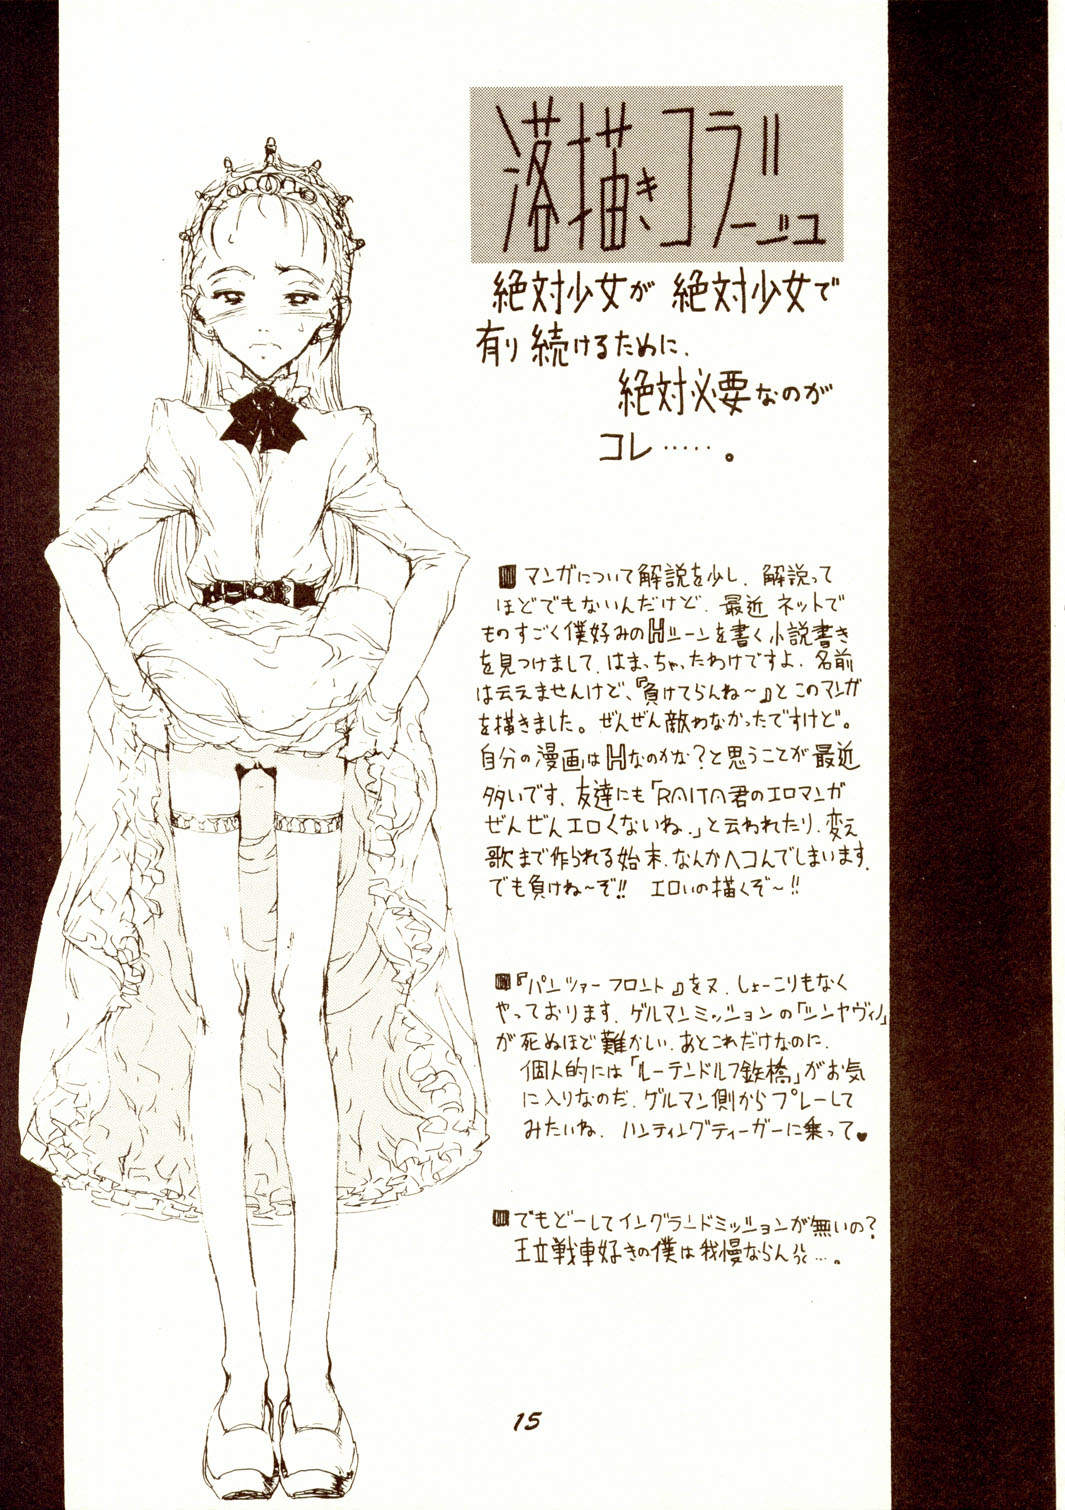 落描きコラージュ
絶対少女が 絶対少女で
有り続けるために、
絶対必要なのが
コレ‥‥‥。
マンガについて解説を少し、解説って
ほどでもないんだけど、最近ネットで
ものすごく僕好みのHシーンを書く小説書き
を見つけまして、はまっちゃったわけですよ、名前
は云えませんけど、『負けてらんね〜』とこのマンガ
を描きました。ぜんぜん敵わなかったですけど。
自分の漫画はHなのかな?と思うことが最近
多いです、友達にも「RAITA君のエロマンガ
ぜんぜんエロくないね.」と云われたり、変え
歌まで作られる始末、なんかヘコんでしまいます、
でも負けね〜ぞ!! エロいの描くぞ〜!!
『パンツァーフロント』を又、しょーこりもなく
やっております、ゲルマンミッションの「シンヤヴィノ」
が死ぬほど難かしい、あとこれだけなのに、
個人的には「ルーテンドルフ鉄橋」がお気
に入りなのだ、ゲルマン側からプレーして
みたいね、ハンティングティーガーに乗って♥
でもどーしてイングランドミッションが無いの?
王立戦車好きの僕は我慢ならん‥‥。
15